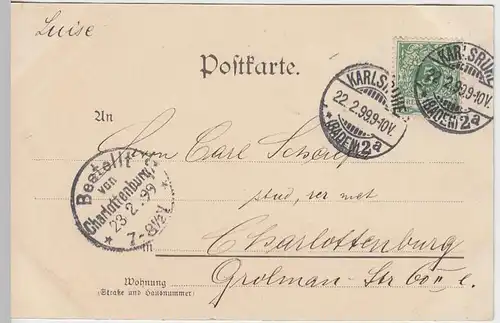 Luise
Postkarte.
KARLSRUHE
22. 2. 99. 9-10V.
* (BADEN) 2a
KARLSRUHE
22. 2. 99. 9-10V.
(BADEN) 2a
An
Herrn Carl
stud. rer
Bestellt
von
Charlottenburg 2
23 2. 99
7-8½V
in Charlottenburg
Grolman-Str 60
Wohnung
(Straße und Hausnummer)